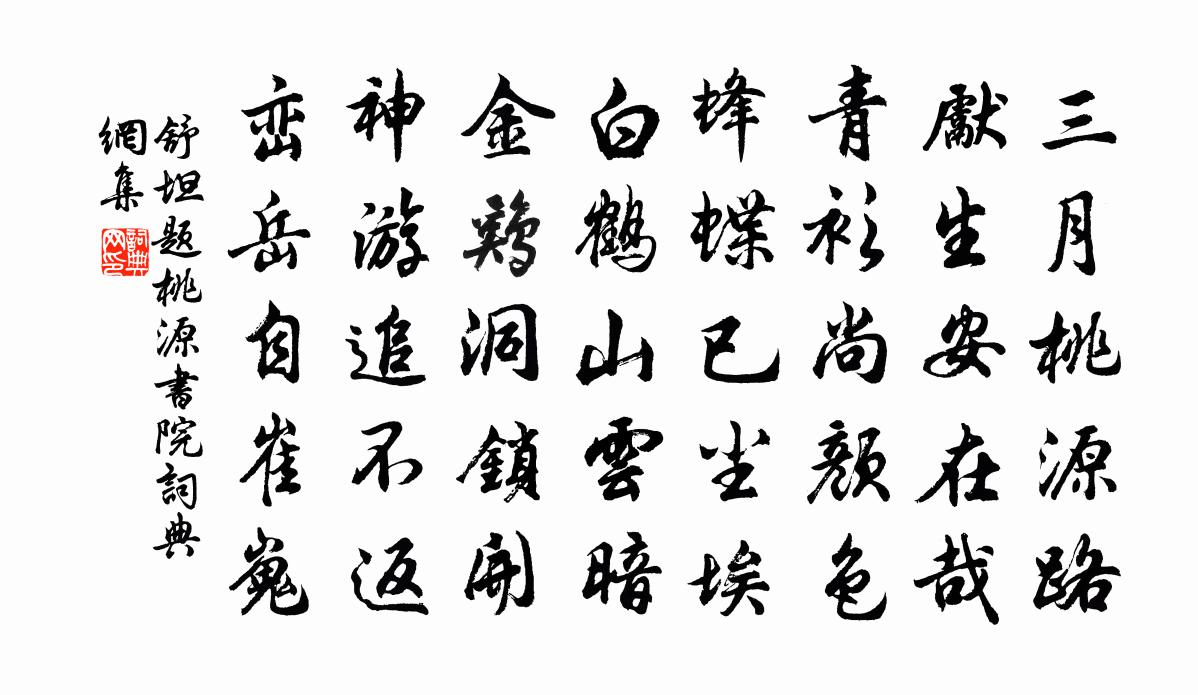 三月桃源路
獻生安在哉
青衫尚顏色
蜂蝶已尘埃
白鶴山雲暗
金鷄洞鎖開
神游追不返
峦岳自崔嵬
舒坦題桃源書院詞典
網集
詞典
网印